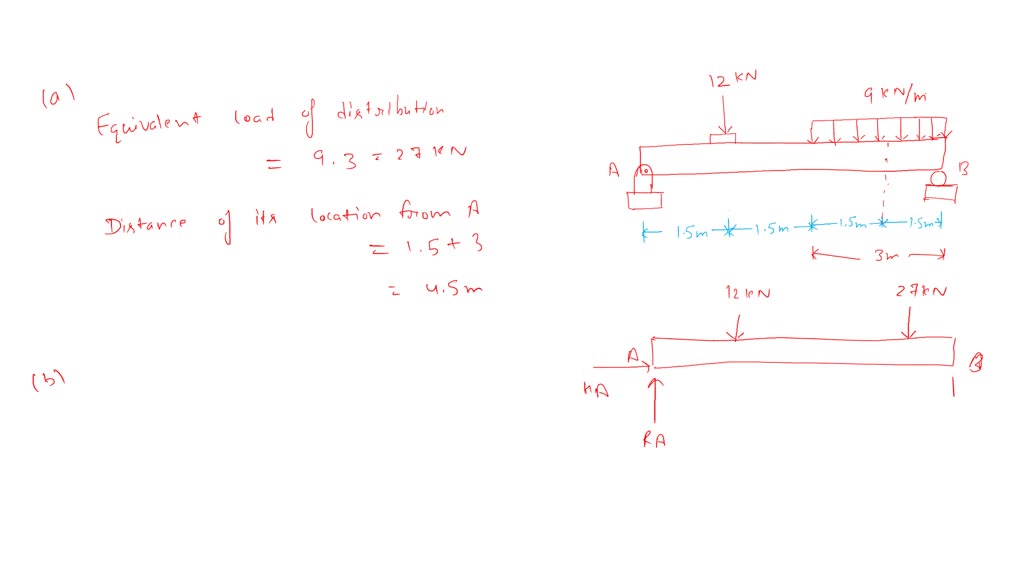 (a)
Equivalent load of distribution
= 9.3 = 27 KN
Distance of its location from A
= 1.5 + 3
= 4.5m
(b)
12 KN
9 KN/m
A
B
1.5m
1.5m
1.5m
1.5m
3m
12 KN
27 KN
A
B
HA
RA